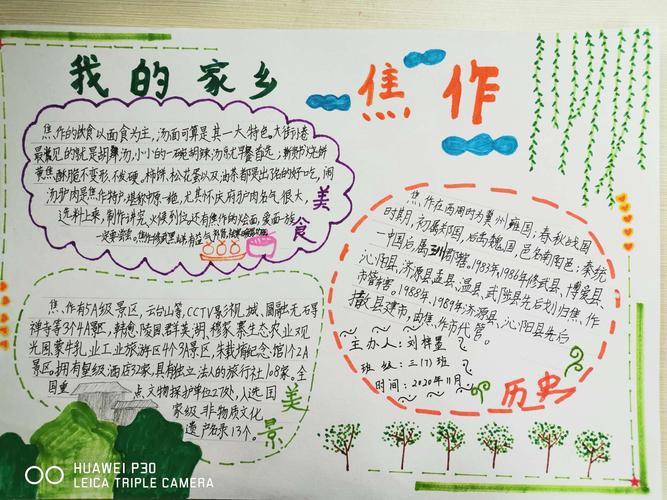 我的家乡
焦作
焦作的饮食以面食为主,汤面可算是其一大特色。大街小巷
最常见的就是胡辣汤,小小的一碗胡辣汤
不变形
柿饼、松花蛋以及油茶都是出了名的好吃,闹
汤驴肉是焦作特产,堪称中原一绝,尤其怀庆府驴肉名气很大,
选料上乘,制作讲究
美食
焦作在西周时为雍国;春秋战国
时期,初属郑国,后击魏国,邑名南阳邑;秦统
一中国后属三川郡辖。1983年、1986年修武县、博爱县、
沁阳县、济源县、孟县、温县、武陟县先后划归焦作
市管辖。1988年、1989年济源县、沁阳县先后
撤县建市,由焦作市代管。
主办人:刘梓昱
班级:三(7)班
时间:2020年11月
历史
焦作有5A级景区,云台山等,CCTV影视城、圆融无石寻
禅寺等3个4A景区,韩愈陵园、群英湖、穆家寨生态农业观
光园、蒙牛乳业工业旅游区4个3A景区,朱载堉纪念馆1个2A
景区。拥有星级酒店32家,具有独立法人的旅行社108家。全
国重点文物保护单位27处,入选国
家级非物质文化
遗产名录13个。
美景
HUAWEI P30
LEICA TRIPLE CAMERA